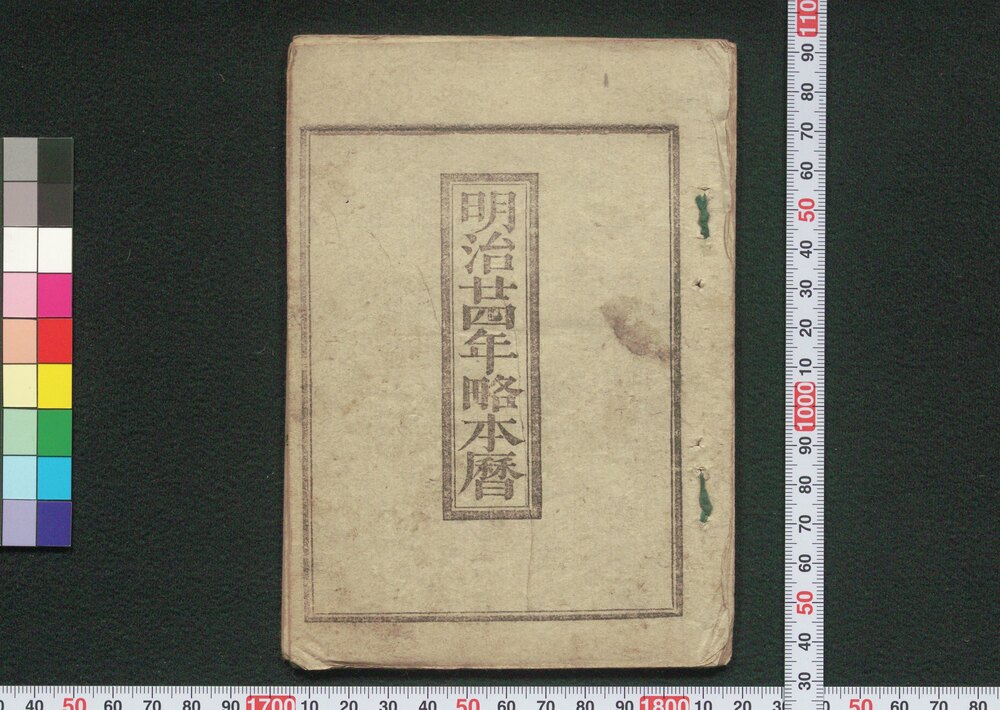 明治廿四年略本暦
1100
90
80
70
60
50
40
30
20
10
1000
90
80
70
60
50
40
30
40 50 60 70 80 90 1700 10 20 30 40 50 60 70 80 90 1800 10 20 30 40 50 60 70 80